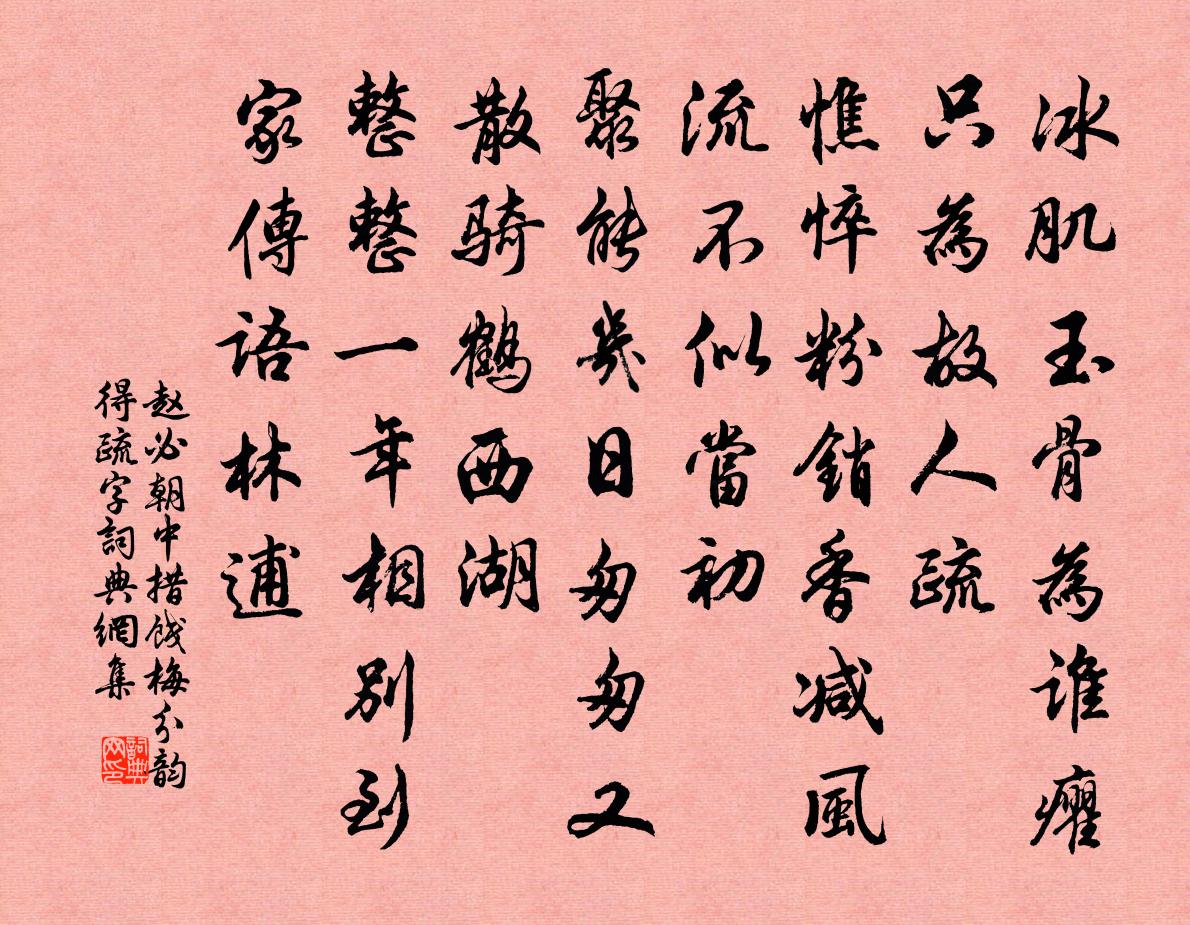 冰肌玉骨為谁癯
只為故人疏
憔悴粉銷香减風
流不似當初
聚能幾日匆匆又
散骑鹤西湖
整整一年相别到
家傳語林逋
赵必朝中措餞梅分韵
得疏字詞典網集
詞典网印